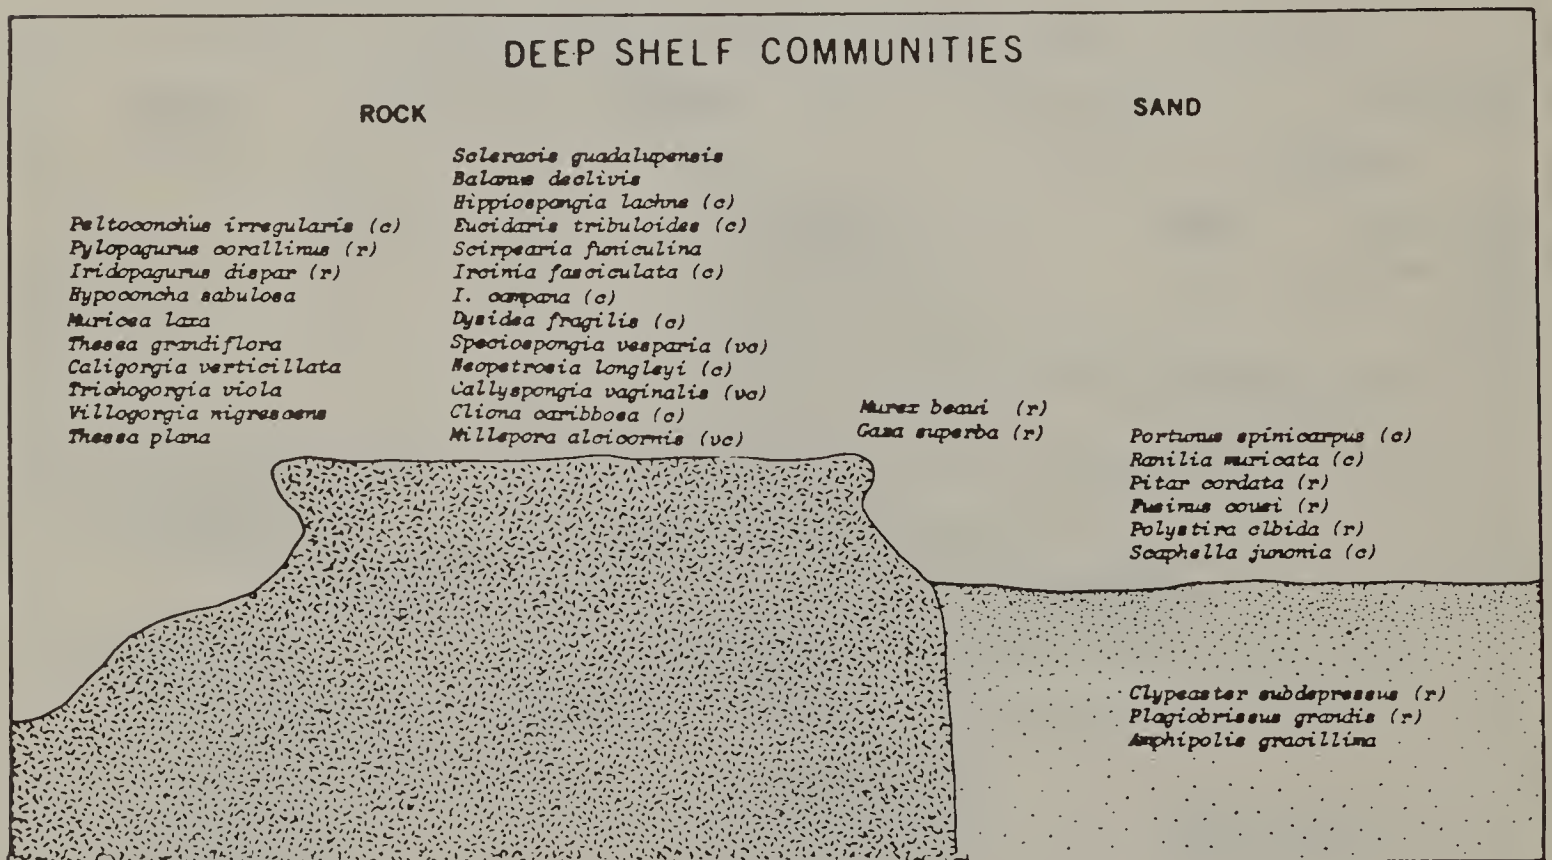 DEEP SHELF COMMUNITIES
ROCK
Peltoconchus irregularis (c)
Pylopagurus corallinus (r)
Iridopagurus dispar (r)
Hypoconcha sabulosa
Muricea laxa
Thesea grandiflora
Caligorgia verticillata
Trichogorgia viola
Villogorgia nigrescens
Thesea plana
Scleracis guadalupensis
Balanus declivis
Hippiospongia lachne (c)
Eucidaris tribuloides (c)
Scirpearia funiculina
Ircinia fasciculata (c)
I. campana (c)
Dysidea fragilis (c)
Speciospongia vesparia (vc)
Neopetrosia longleyi (c)
Callyspongia vaginalis (vc)
Cliona caribboea (c)
Millepora alcicornis (vc)
SAND
Murex beaui (r)
Gaza superba (r)
Portunus spinicarpus (c)
Ranilia muricata (c)
Pitar cordata (r)
Fusinus couei (r)
Polystira albida (r)
Scaphella junonia (c)
Clypeaster subdepressus (r)
Plagiobrissus grandis (r)
Amphipolis gracillima